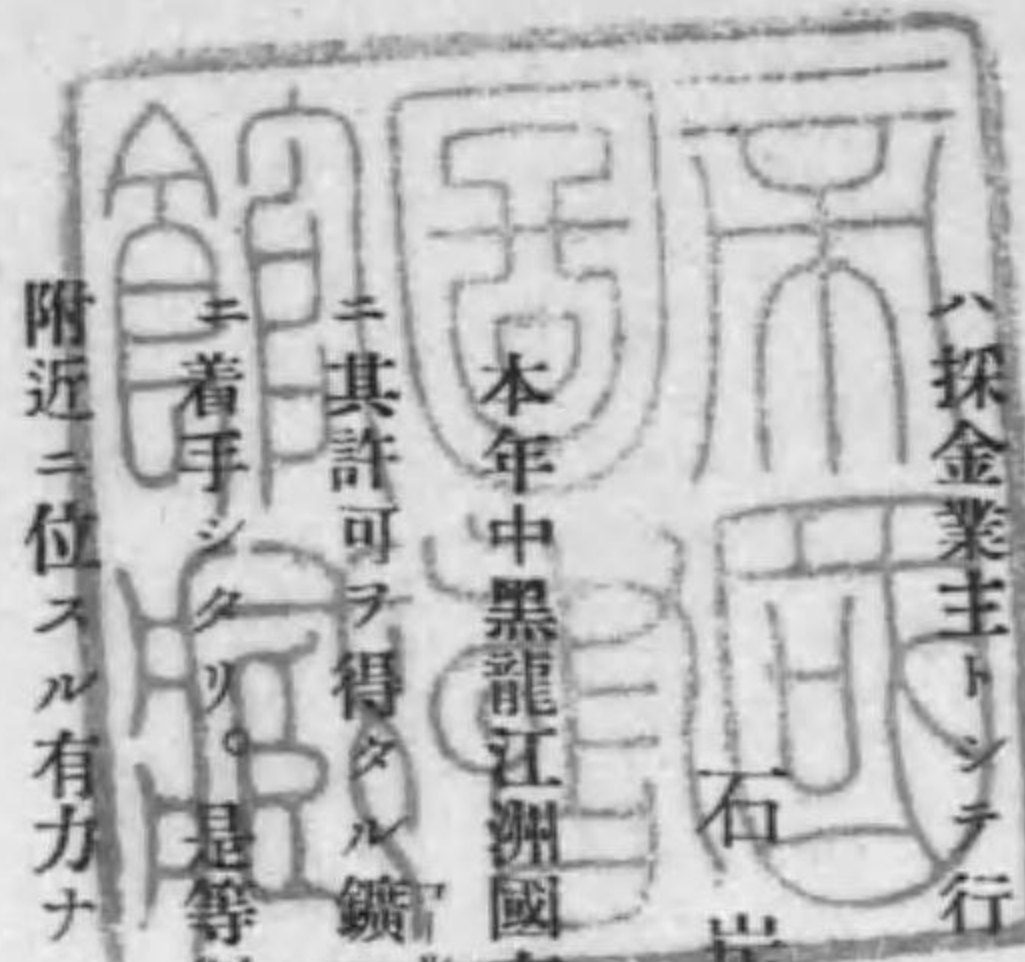 ハ採金業主トシテ行
石炭
本年中黑龍江洲國
ニ其許可ヲ得タル鑛
ニ着手シタリ。是等
附近ニ位スル有力ナ
帝國
圖書
館藏